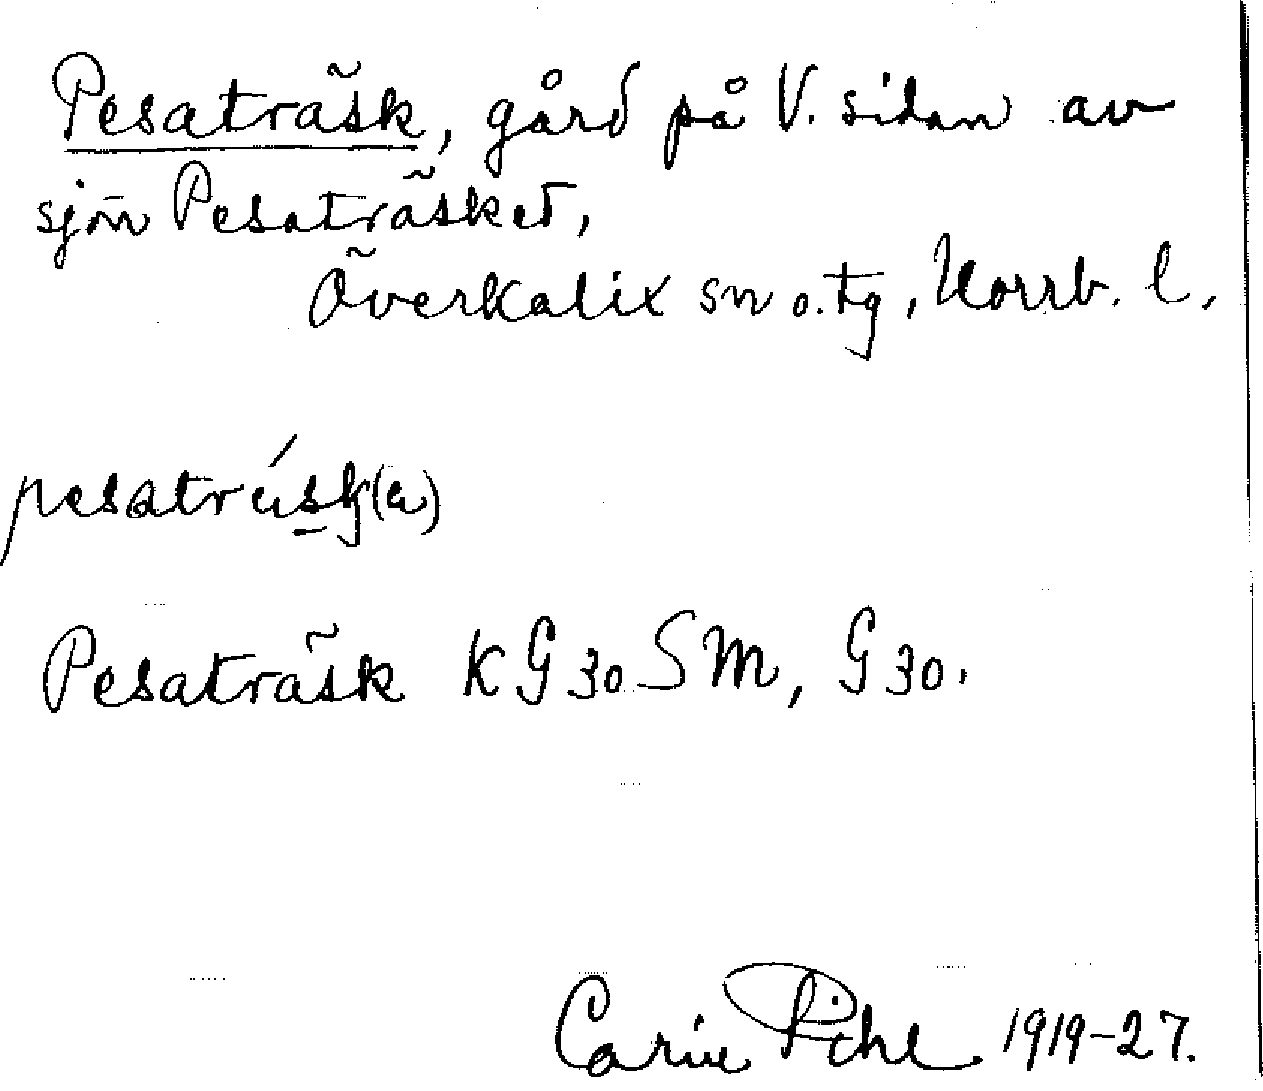 Pesaträsk, gård på V. sidan av
sjön Pesaträsket,
Överkalix sn o. tg, Norrb. l.
Pesaträsk KG 30 SM, G 30.
Carin Pihl 1919-27.